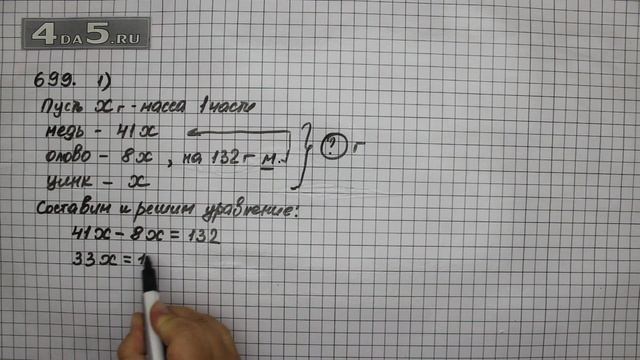 4DA5.RU
699. 1)
Пусть x г - масса 1 части
медь - 41x
олово - 8x, на 132 г м.
цинк - x
? г
Составим и решим уравнение:
41x - 8x = 132
33x = 1